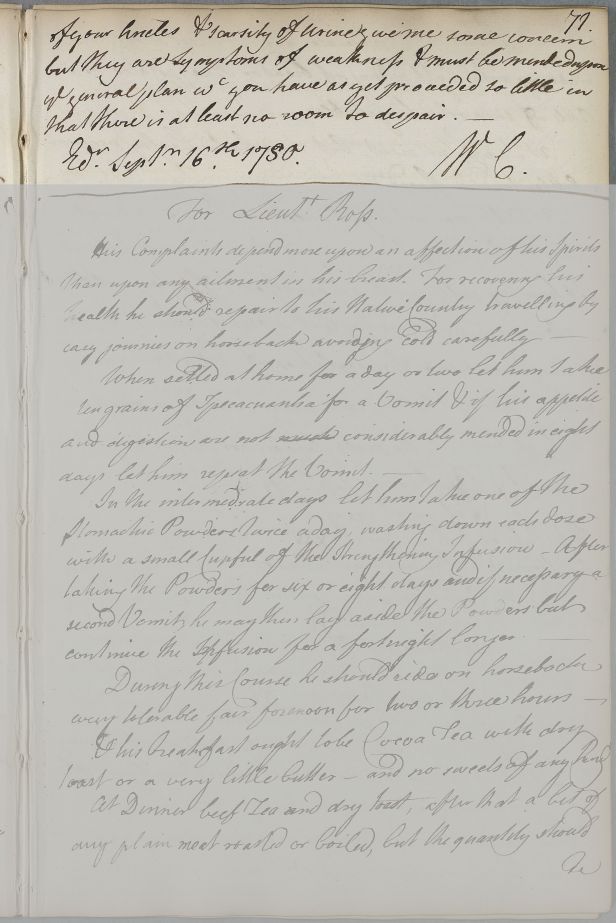 77.
of your Ancles & scarsity of Urine give me some concern
but they are Symptoms of weakness & must be mended upon
ye general plan wc you have as yet proceeded so little in
that there is at least no room to despair. —
Edr. Septr. 16.th 1780.
W C.
For Lieutt. Ross.
His Complaints depend more upon an affection of his Spirits
than upon any ailment in his breast. For recovering his
health he should repair to his Native Country travelling by
easy journies on horseback avoiding Cold carefully —
When settled at home for a day or two let him take
ten grains of Ipecacuanha for a Vomit & if his appetite
and digestion are not much considerably mended in eight
days let him repeat the Vomit. —
In the intermediate days let him take one of the
Stomachic Powders twice a day, washing down each dose
with a small Cupful of the Strengthening Infusion – After
taking the Powders for six or eight days and if necessary a
second Vomit, he may then lay aside the Powders but
continue the Infusion for a fortnight longer —
During this Course he should ride on horseback
every tolerable fair forenoon for two or three hours —
& his breakfast ought to be Cocoa Tea with dry
toast or a very little butter – and no sweets of any kind
At Dinner beef Tea and dry toast, after that a bit of
any plain meat roasted or boiled, but the quantity should
be